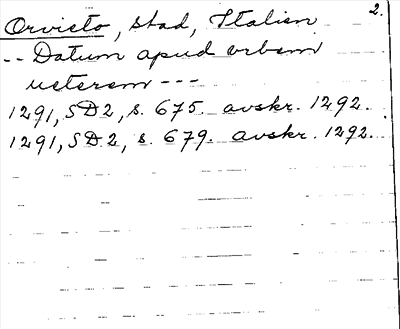 2.
Orvieto, stad, Italien
-- Datum apud urbem
ueterem ---
1291, SD2, s. 675. avskr. 1292.
1291, SD2, s. 679. avskr. 1292.